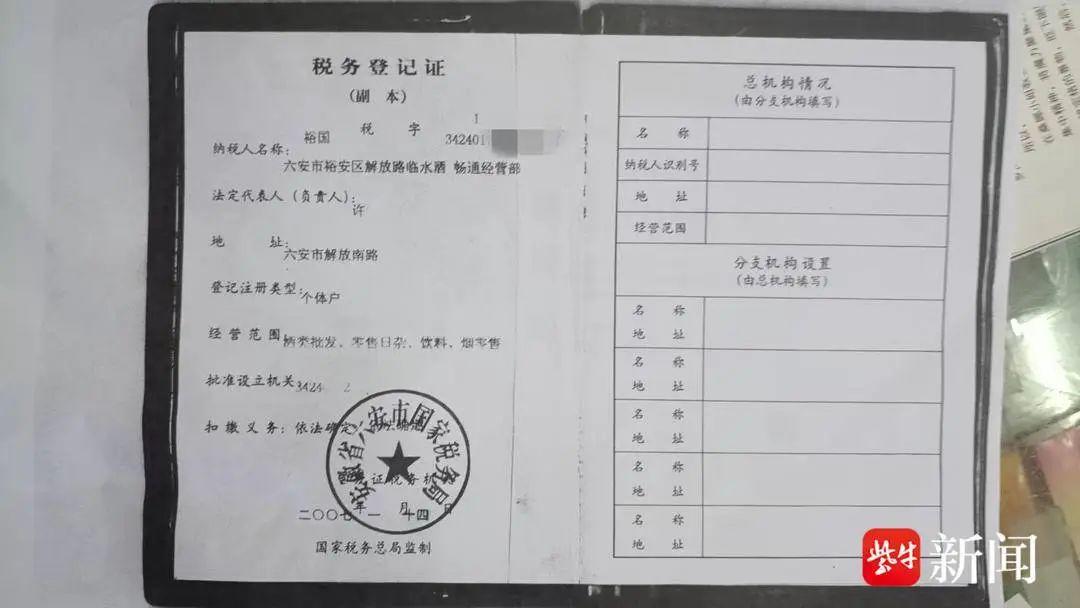 税务登记证
(副 本)
1
裕国 税 字 342401
纳税人名称:
六安市裕安区解放路临水酒 畅通经营部
法定代表人(负责人):
许
地 址:
六安市解放南路
登记注册类型:
个体户
经营范围
酒类批发、零售日杂、饮料、烟零售
批准设立机关
3424 2
扣缴义务:依法确定
安徽省六安市国家税务局
发证税务机
二〇〇七年 一 月 十四 日
国家税务总局监制
总机构情况
(由分支机构填写)
名 称
纳税人识别号
地 址
经营范围
分支机构设置
(由总机构填写)
名 称
地 址
名 称
地 址
名 称
地 址
名 称
地 址
名 称
地 址
紫牛新闻